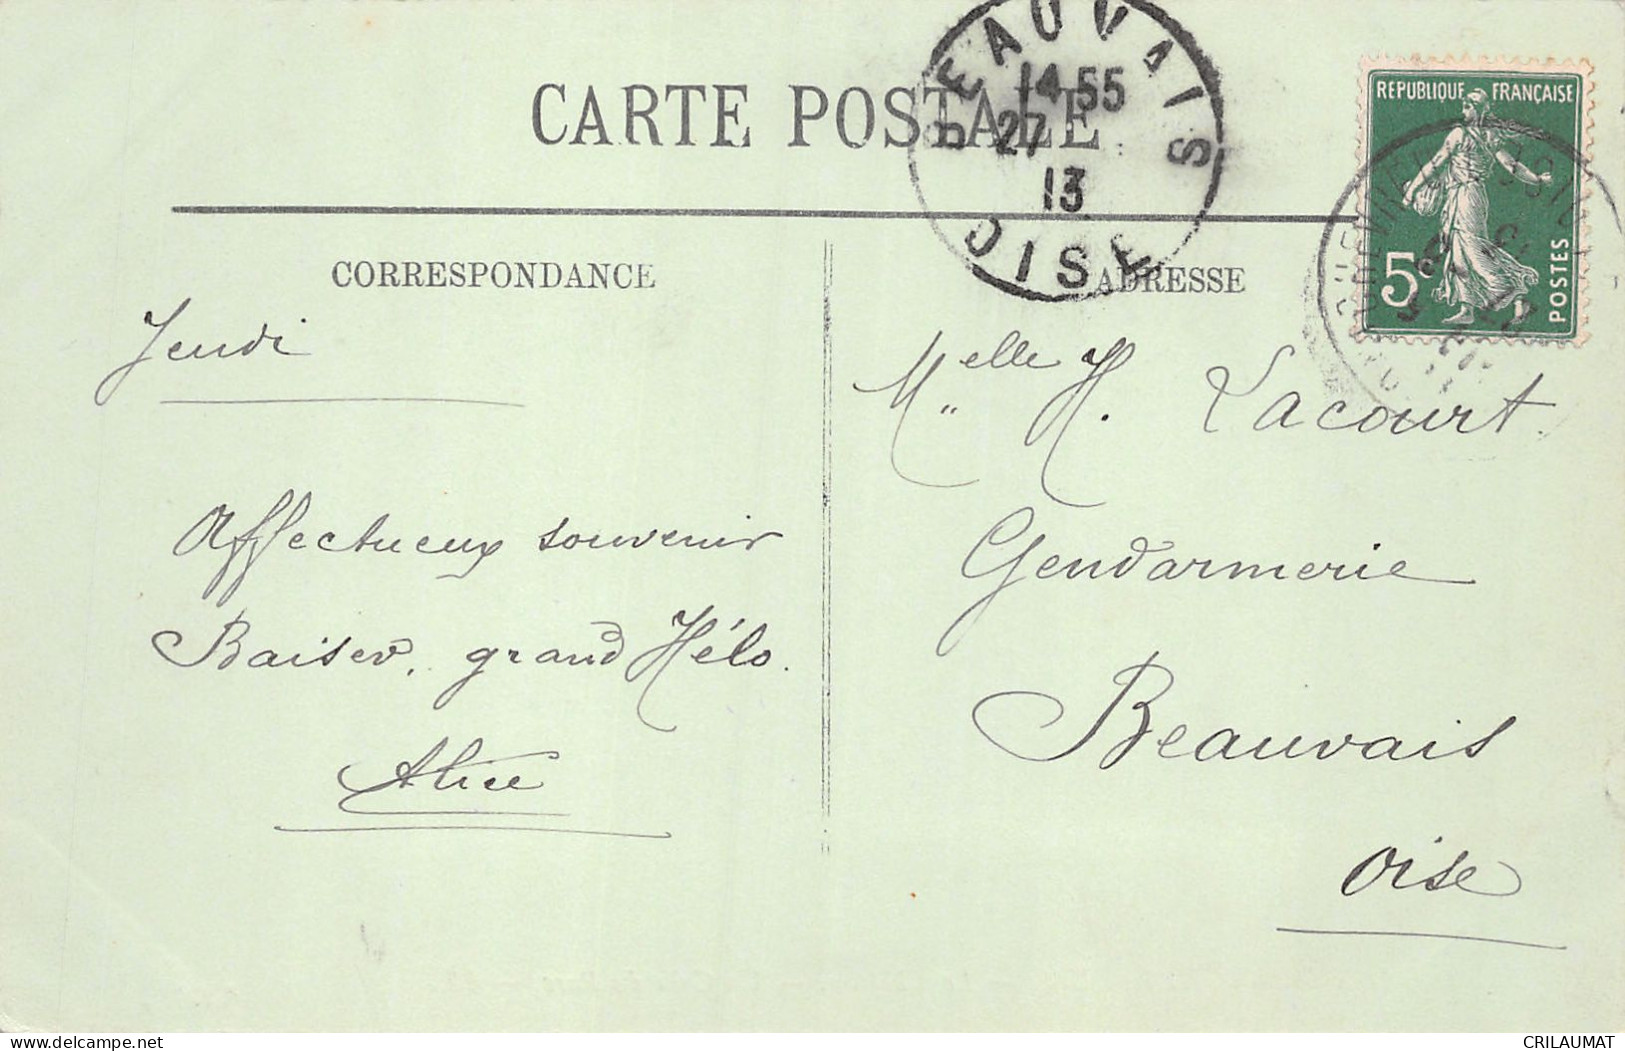 CARTE POSTALE
BEAUVAIS
14 55
27
13
OISE
RÉPUBLIQUE FRANÇAISE
5c
POSTES
CORRESPONDANCE
ADRESSE
Jeudi
Affectueux souvenir
Baiser, grand Hélo.
Alice
Melle H. Lacourt.
Gendarmerie
Beauvais
Oise
www.delcampe.net
CRILAUMAT